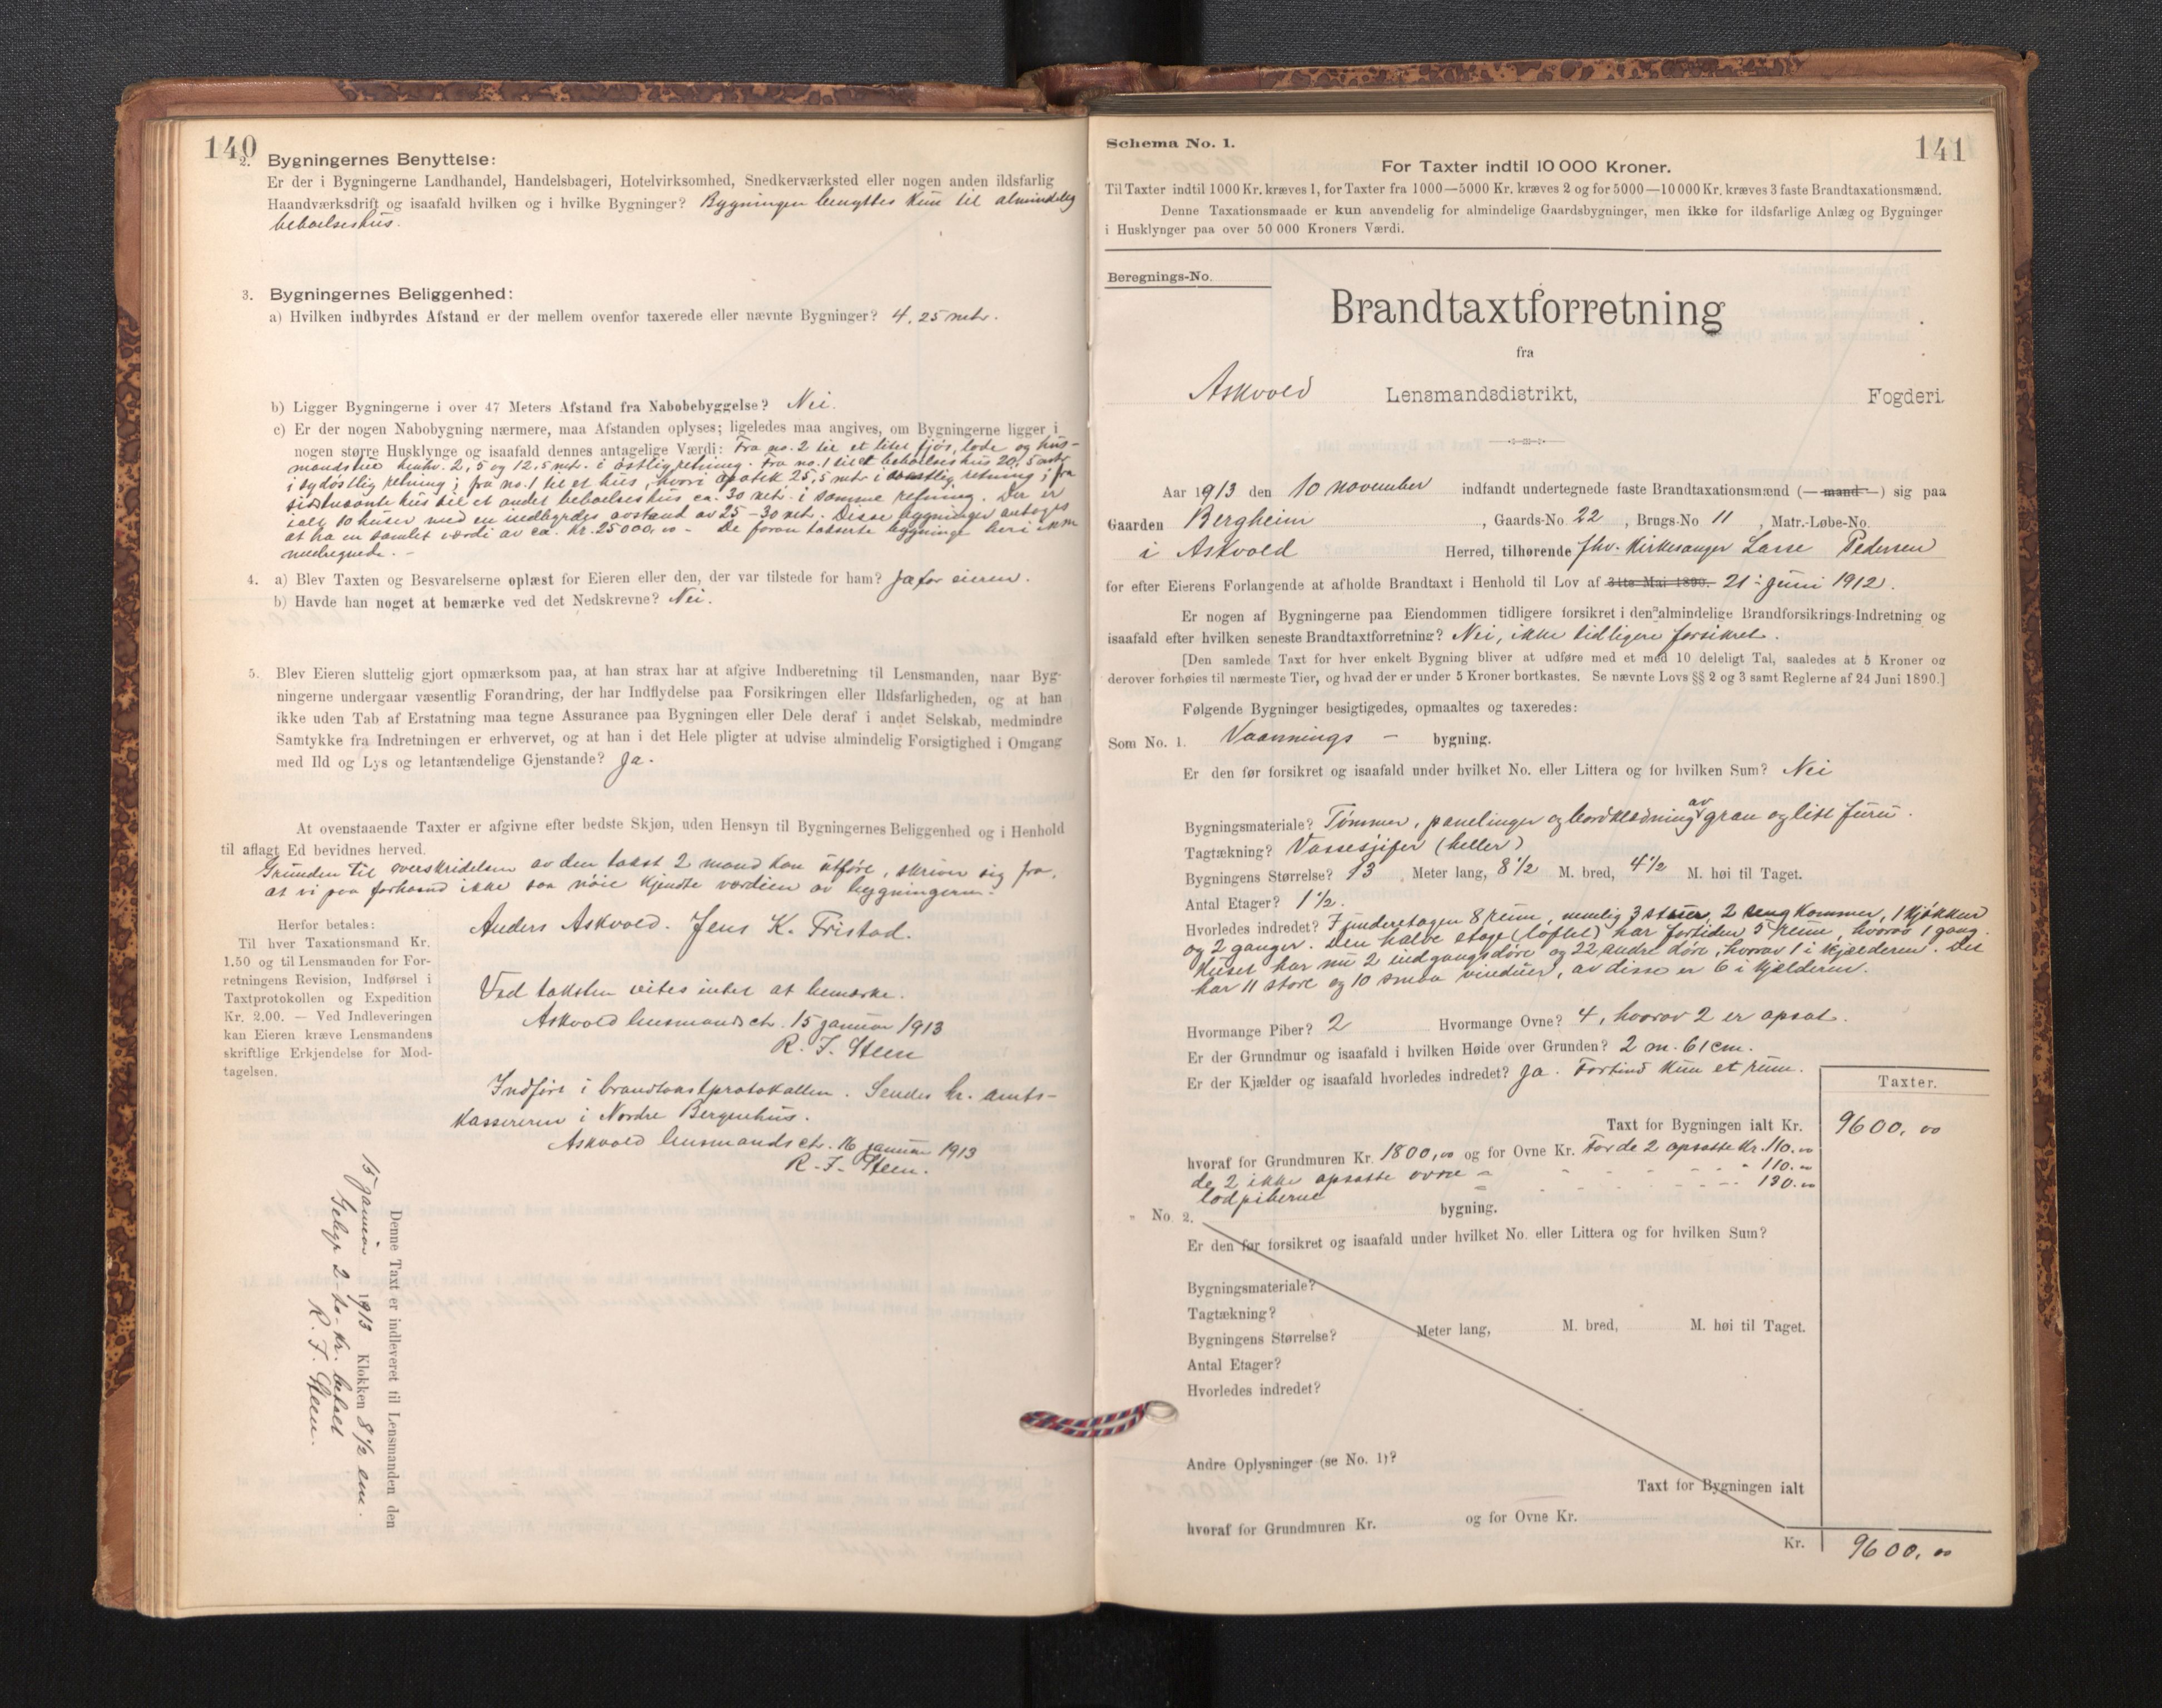 140
2. Bygningernes Benyttelse:
Er der i Bygningerne Landhandel, Handelsbageri, Hotelvirksomhed, Snedkerværksted eller nogen anden ildsfarlig
Haandværksdrift og isaafald hvilken og i hvilke Bygninger? Bygningen benyttes kun til almindelig
beboelseshus.
3. Bygningernes Beliggenhed:
a) Hvilken indbyrdes Afstand er der mellem ovenfor taxerede eller nævnte Bygninger? 4,25 metr.
b) Ligger Bygningerne i over 47 Meters Afstand fra Nabobebyggelse? Nei.
c) Er der nogen Nabobygning nærmere, maa Afstanden oplyses; ligeledes maa angives, om Bygningerne ligger i
nogen større Husklynge og isaafald dennes antagelige Værdi: Fra no. 2 til et litet fjøs, løde og hus-
mandshus henhv. 2,5 og 12,5 metr. i østlig retning. Fra no. 1 til et beboelseshus 20,5 metr
i sydøstlig retning; fra no. 1 til et hus, hvori apotek 25,5 metr i retning; fra
sidstnævnte hus til et andet beboelseshus ca. 30 metr. i samme retning. Der er
ialt 10 huser med en indbyrdes avstand av 25-30 metr. Disse bygninger antages
at ha en samlet værdi av ca. kr. 25000,00 - De foran takserte bygninge heri ikke
medregnede. -
4. a) Blev Taxten og Besvarelserne oplæst for Eieren eller den, der var tilstede for ham? Ja for eieren.
b) Havde han noget at bemærke ved det Nedskrevne? Nei.
5. Blev Eieren sluttelig gjort opmærksom paa, at han strax har at afgive Indberetning til Lensmanden, naar Byg-
ningerne undergaar væsentlig Forandring, der har Indflydelse paa Forsikringen eller Ildsfarligheden, og at han
ikke uden Tab af Erstatning maa tegne Assurance paa Bygningen eller Dele deraf i andet Selskab, medmindre
Samtykke fra Indretningen er erhvervet, og at han i det Hele pligter at udvise almindelig Forsigtighed i Omgang
med Ild og Lys og letantændelige Gjenstande? Ja.
At ovenstaaende Taxter er afgivne efter bedste Skjøn, uden Hensyn til Bygningernes Beliggenhed og i Henhold
til aflagt Ed bevidnes herved.
Grunden til overskridelsen av den takst 2 mand kan utføre, skriver sig fra,
at vi paa forhaand ikke saa nøie kjendte værdien av bygningerne.
Anders Askvold. Jens K. Tristad.
Herfor betales:
Til hver Taxationsmand Kr.
1.50 og til Lensmanden for For-
retningens Revision, Indførsel i
Taxtprotokollen og Expedition
Kr. 2.00. — Ved Indleveringen
kan Eieren kræve Lensmandens
skriftlige Erkjendelse for Mod-
tagelsen.
Ved taksten vites intet at bemærke.
Askvold lensmandsct. 15 januar 1913
R. J. Steen
Indført i brandtakstprotokollen. Sendes hr. amts-
kassereren i Nordre Bergenhus.
Askvold lensmandsct. 16 januar 1913
R. J. Steen.
Denne Taxt er indleveret til Lensmanden den
15 januar 1913 Klokken 8 1/2 em.
Gebyr 2- to - kr. betalt
R. J. Steen.
141
Schema No. 1.
For Taxter indtil 10 000 Kroner.
Til Taxter indtil 1000 Kr. kræves 1, for Taxter fra 1000—5000 Kr. kræves 2 og for 5000—10 000 Kr. kræves 3 faste Brandtaxationsmænd.
Denne Taxationsmaade er kun anvendelig for almindelige Gaardsbygninger, men ikke for ildsfarlige Anlæg og Bygninger
i Husklynger paa over 50 000 Kroners Værdi.
Beregnings-No.
Brandtaxtforretning
fra
Askvold Lensmandsdistrikt, Fogderi.
Aar 1913 den 10 november indfandt undertegnede faste Brandtaxationsmænd (— mand —) sig paa
Gaarden Bergheim, Gaards-No. 22, Brugs-No 11, Matr.-Løbe-No.
i Askvold Herred, tilhørende fhv. Kirkesanger Lasse Pedersen
for efter Eierens Forlangende at afholde Brandtaxt i Henhold til Lov af 31te Mai 1890. 21: juni 1912.
Er nogen af Bygningerne paa Eiendommen tidligere forsikret i den almindelige Brandforsikrings-Indretning og
isaafald efter hvilken seneste Brandtaxtforretning? Nei, ikke tidligere forsikret.
[Den samlede Taxt for hver enkelt Bygning bliver at udføre med et med 10 deleligt Tal, saaledes at 5 Kroner og
derover forhøies til nærmeste Tier, og hvad der er under 5 Kroner bortkastes. Se nævnte Lovs §§ 2 og 3 samt Reglerne af 24 Juni 1890.]
Følgende Bygninger besigtigedes, opmaaltes og taxeredes:
Som No. 1. Vaanings - bygning.
Er den før forsikret og isaafald under hvilket No. eller Littera og for hvilken Sum? Nei
Bygningsmateriale? Tømmer, panelinger og bordklædning av gran og litt furu.
Tagtækning? (heller)
Bygningens Størrelse? 13 Meter lang, 8 1/2 M. bred, 4 1/2 M. høi til Taget.
Antal Etager? 1 1/2.
Hvorledes indredet? I underetagen 8 rum, nemlig 3 stuer, 2 sengkammer, 1 kjøkken
og 2 ganger. Den halve etage (loftet) har fortiden 5 rum, hvorav 1 gang.
Huset har nu 2 indgangsdøre og 22 andre døre, hvorav 1 i kjælderen. Det
har 11 store og 10 smaa vinduer, av disse er 6 i kjælderen.
Hvormange Piber? 2 Hvormange Ovne? 4, hvorav 2 er opsat.
Er der Grundmur og isaafald i hvilken Høide over Grunden? 2 m. 61 cm.
Er der Kjælder og isaafald hvorledes indredet? Ja. Fortind kun et rum.
Taxter.
Taxt for Bygningen ialt Kr. 9600,00
hvoraf for Grundmuren Kr. 1800,00 og for Ovne Kr. For de 2 opsatte kr. 110.00
de 2 ikke opsatte ovne - - - - 110.00
lodpiberne - - - - 130.00
" No. 2. bygning.
Er den før forsikret og isaafald under hvilket No. eller Littera og for hvilken Sum?
Bygningsmateriale?
Tagtækning?
Bygningens Størrelse? Meter lang, M. bred, M. høi til Taget.
Antal Etager?
Hvorledes indredet?
Andre Oplysninger (se No. 1)?
Taxt for Bygningen ialt
hvoraf for Grundmuren Kr. og for Ovne Kr.
Kr. 9600,00